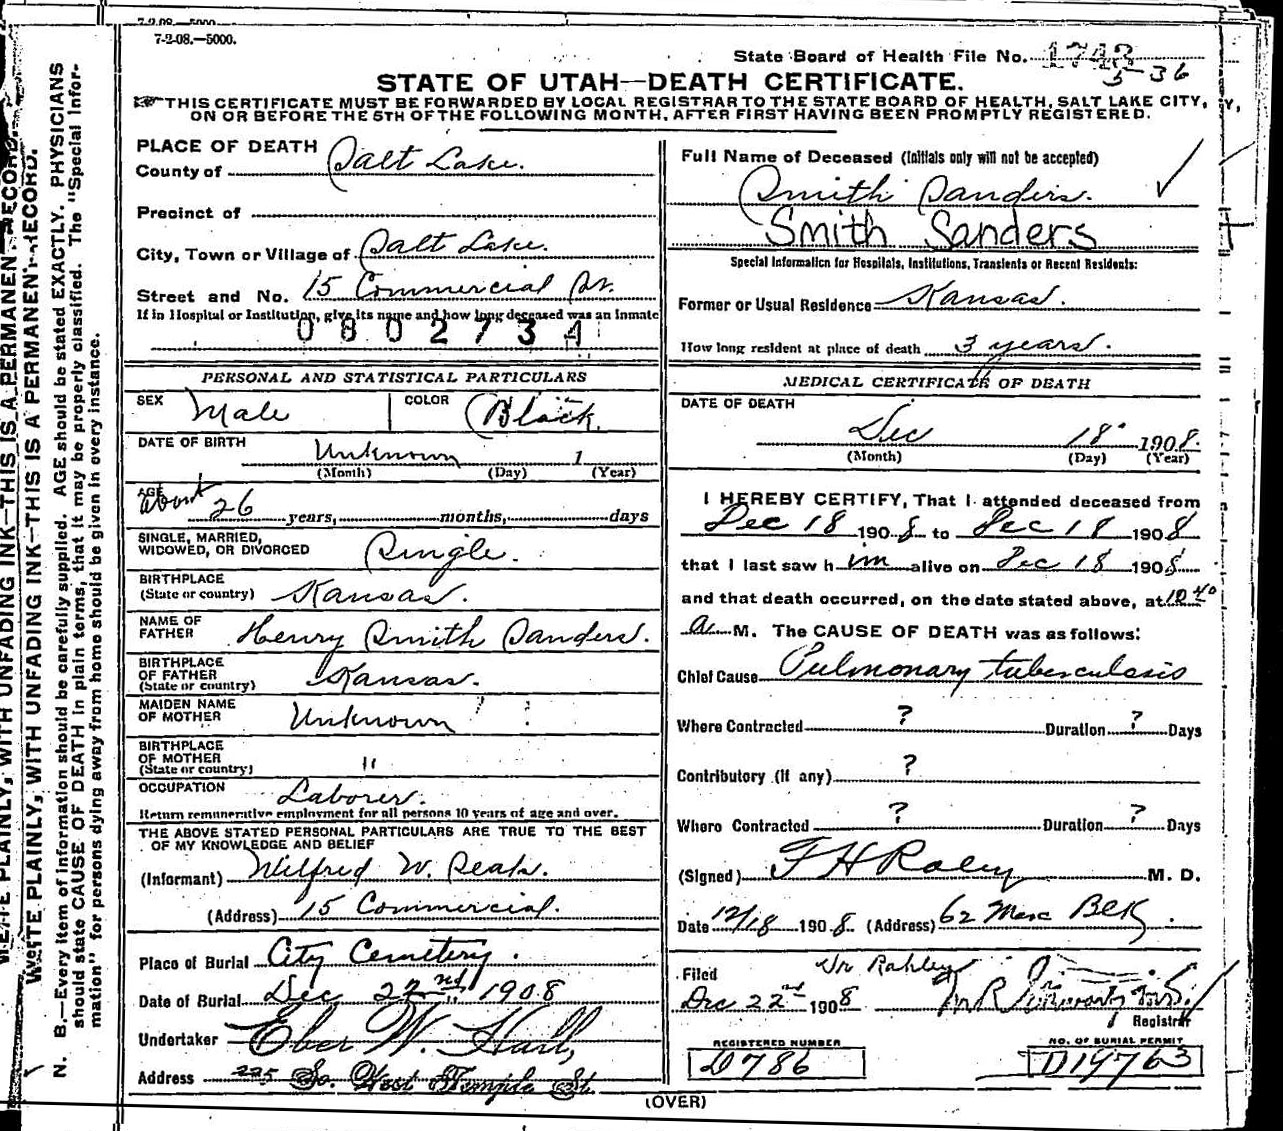 7-2-08.—5000.
State Board of Health File No. 1743
536
STATE OF UTAH—DEATH CERTIFICATE.
THIS CERTIFICATE MUST BE FORWARDED BY LOCAL REGISTRAR TO THE STATE BOARD OF HEALTH, SALT LAKE CITY,
ON OR BEFORE THE 5TH OF THE FOLLOWING MONTH, AFTER FIRST HAVING BEEN PROMPTLY REGISTERED.
WRITE PLAINLY, WITH UNFADING INK—THIS IS A PERMANENT RECORD.
N. B.—Every item of information should be carefully supplied. AGE should be stated EXACTLY. PHYSICIANS
should state CAUSE OF DEATH in plain terms, that it may be properly classified. The "Special Infor-
mation" for persons dying away from home should be given in every instance.
PLACE OF DEATH
County of Salt Lake.
Precinct of
City, Town or Village of Salt Lake.
Street and No. 15 Commercial St.
If in Hospital or Institution, give its name and how long deceased was an Inmate
0802734
PERSONAL AND STATISTICAL PARTICULARS
SEX Male COLOR Black.
DATE OF BIRTH Unknown 1
(Month) (Day) (Year)
AGE about 26 years, months, days
SINGLE, MARRIED,
WIDOWED, OR DIVORCED Single.
BIRTHPLACE
(State or country) Kansas.
NAME OF
FATHER Henry Smith Sanders.
BIRTHPLACE
OF FATHER
(State or country) Kansas.
MAIDEN NAME
OF MOTHER Unknown
BIRTHPLACE
OF MOTHER
(State or country) "
OCCUPATION Laborer.
Return remunerative employment for all persons 10 years of age and over.
THE ABOVE STATED PERSONAL PARTICULARS ARE TRUE TO THE BEST
OF MY KNOWLEDGE AND BELIEF
(Informant) Wilfred W.
(Address) 15 Commercial.
Place of Burial City Cemetery.
Date of Burial Dec 22nd 1908
Undertaker Eber W. Hall,
Address 225 So. West Temple St.
Full Name of Deceased (Initials only will not be accepted)
Smith Sanders.
Smith Sanders
Special Information for Hospitals, Institutions, Transients or Recent Residents:
Former or Usual Residence Kansas.
How long resident at place of death 3 years.
MEDICAL CERTIFICATE OF DEATH
DATE OF DEATH
Dec 18 1908.
(Month) (Day) (Year)
I HEREBY CERTIFY, That I attended deceased from
Dec 18 1908 to Dec 18 1908
that I last saw him alive on Dec 18 1908
and that death occurred, on the date stated above, at 10 40
a M. The CAUSE OF DEATH was as follows:
Chief Cause Pulmonary tuberculosis
Where Contracted ? Duration ? Days
Contributory (if any) ?
Where Contracted ? Duration ? Days
(Signed) F H Raley M. D.
Date 12/18 1908. (Address) 62 Merc Blk
Filed
Dec 22nd 1908
Registrar
REGISTERED NUMBER
D786
NO. OF BURIAL PERMIT
D19763
(OVER)